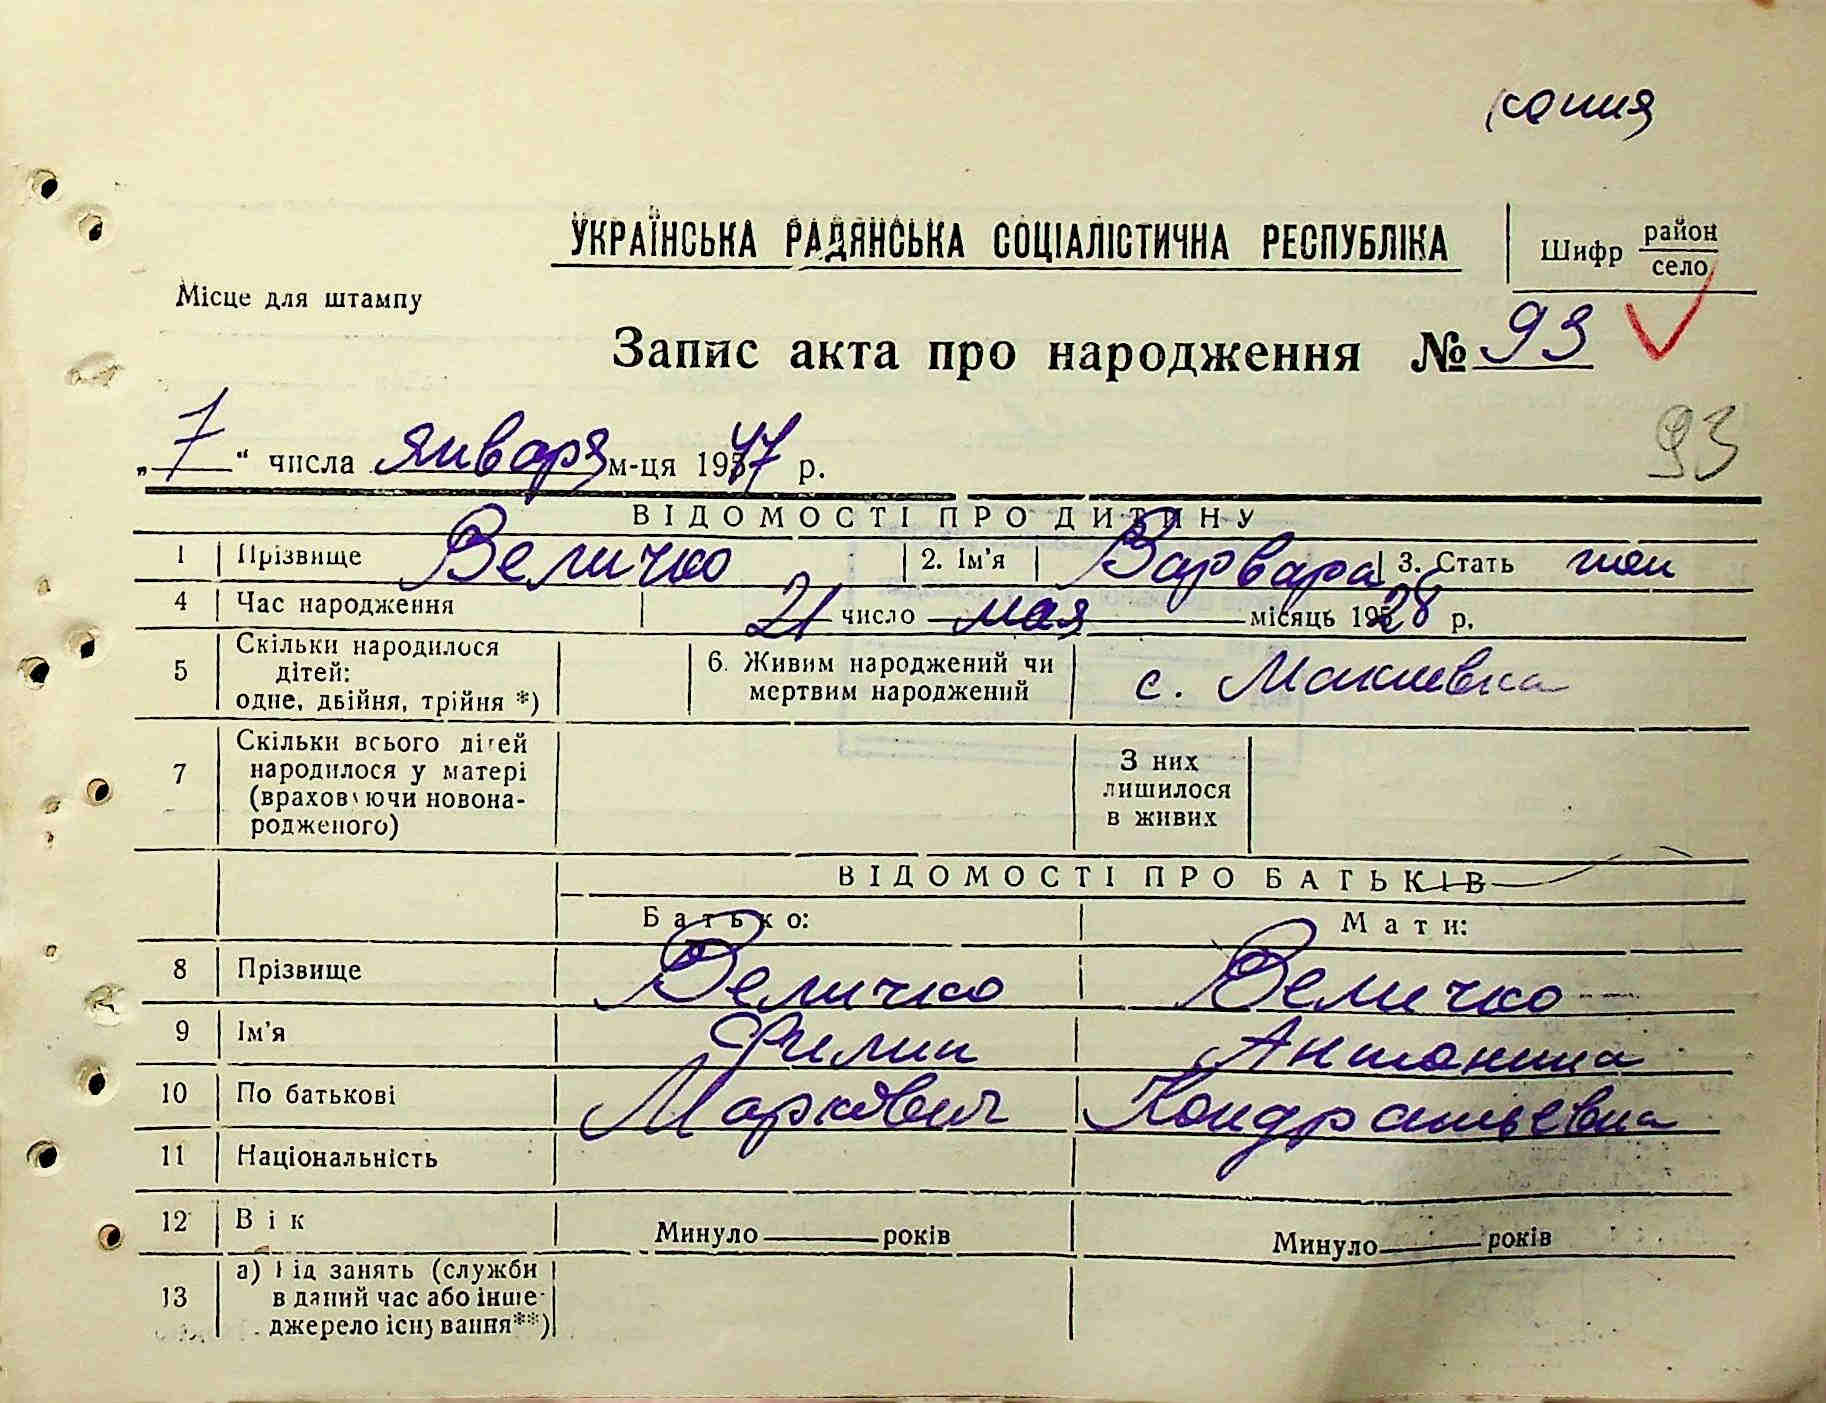 копия
УКРАЇНСЬКА РАДЯНСЬКА СОЦІАЛІСТИЧНА РЕСПУБЛІКА
Шифр район
село
Місце для штампу
Запис акта про народження № 93
93
„ 7 “ числа января м-ця 1947 р.
ВІДОМОСТІ ПРО ДИТИНУ
1 Прізвище Величко 2. Ім'я Варвара 3. Стать жен
4 Час народження 21 число мая місяць 1928 р.
5 Скільки народилося
дітей:
одне, двійня, трійня *)
6. Живим народжений чи
мертвим народжений
с. Макиевка
7 Скільки всього дітей
народилося у матері
(враховуючи новона-
родженого)
З них
лишилося
в живих
ВІДОМОСТІ ПРО БАТЬКІВ
Батько: Мати:
8 Прізвище Величко Величко
9 Ім'я Филип Антонина
10 По батькові Маркович Кондратьевна
11 Національність
12 Вік Минуло років Минуло років
13 а) Рід занять (служби
в даний час або інше
джерело існування**)